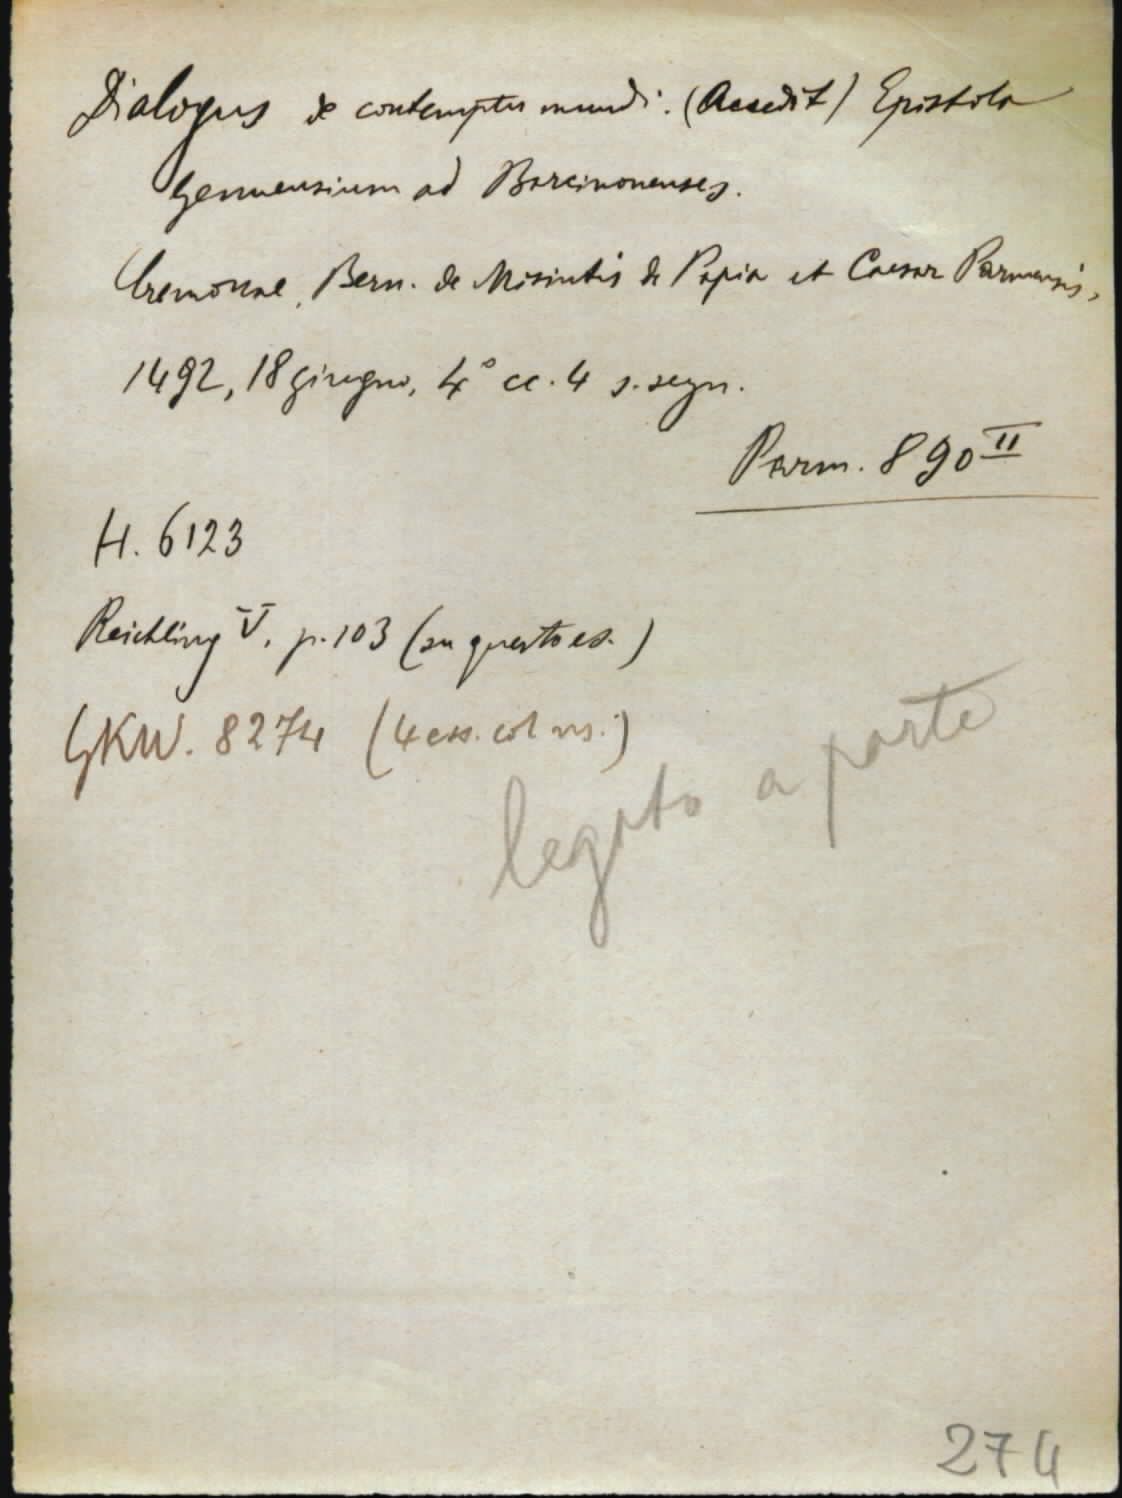 Dialogus de contemptu mundi. (Accedit) Epistola
Genuensium ad Barcinonenses.
Cremonae, Bern. de Misintis de Papia et Caesar Parmensis,
1492, 18 giugno, 4° cc. 4 s. segn.
Parm. 890 II
H. 6123
Reichling V, p. 103 (su questo es.)
GKW. 8274 (4 ess. col ns.)
legato a parte
274